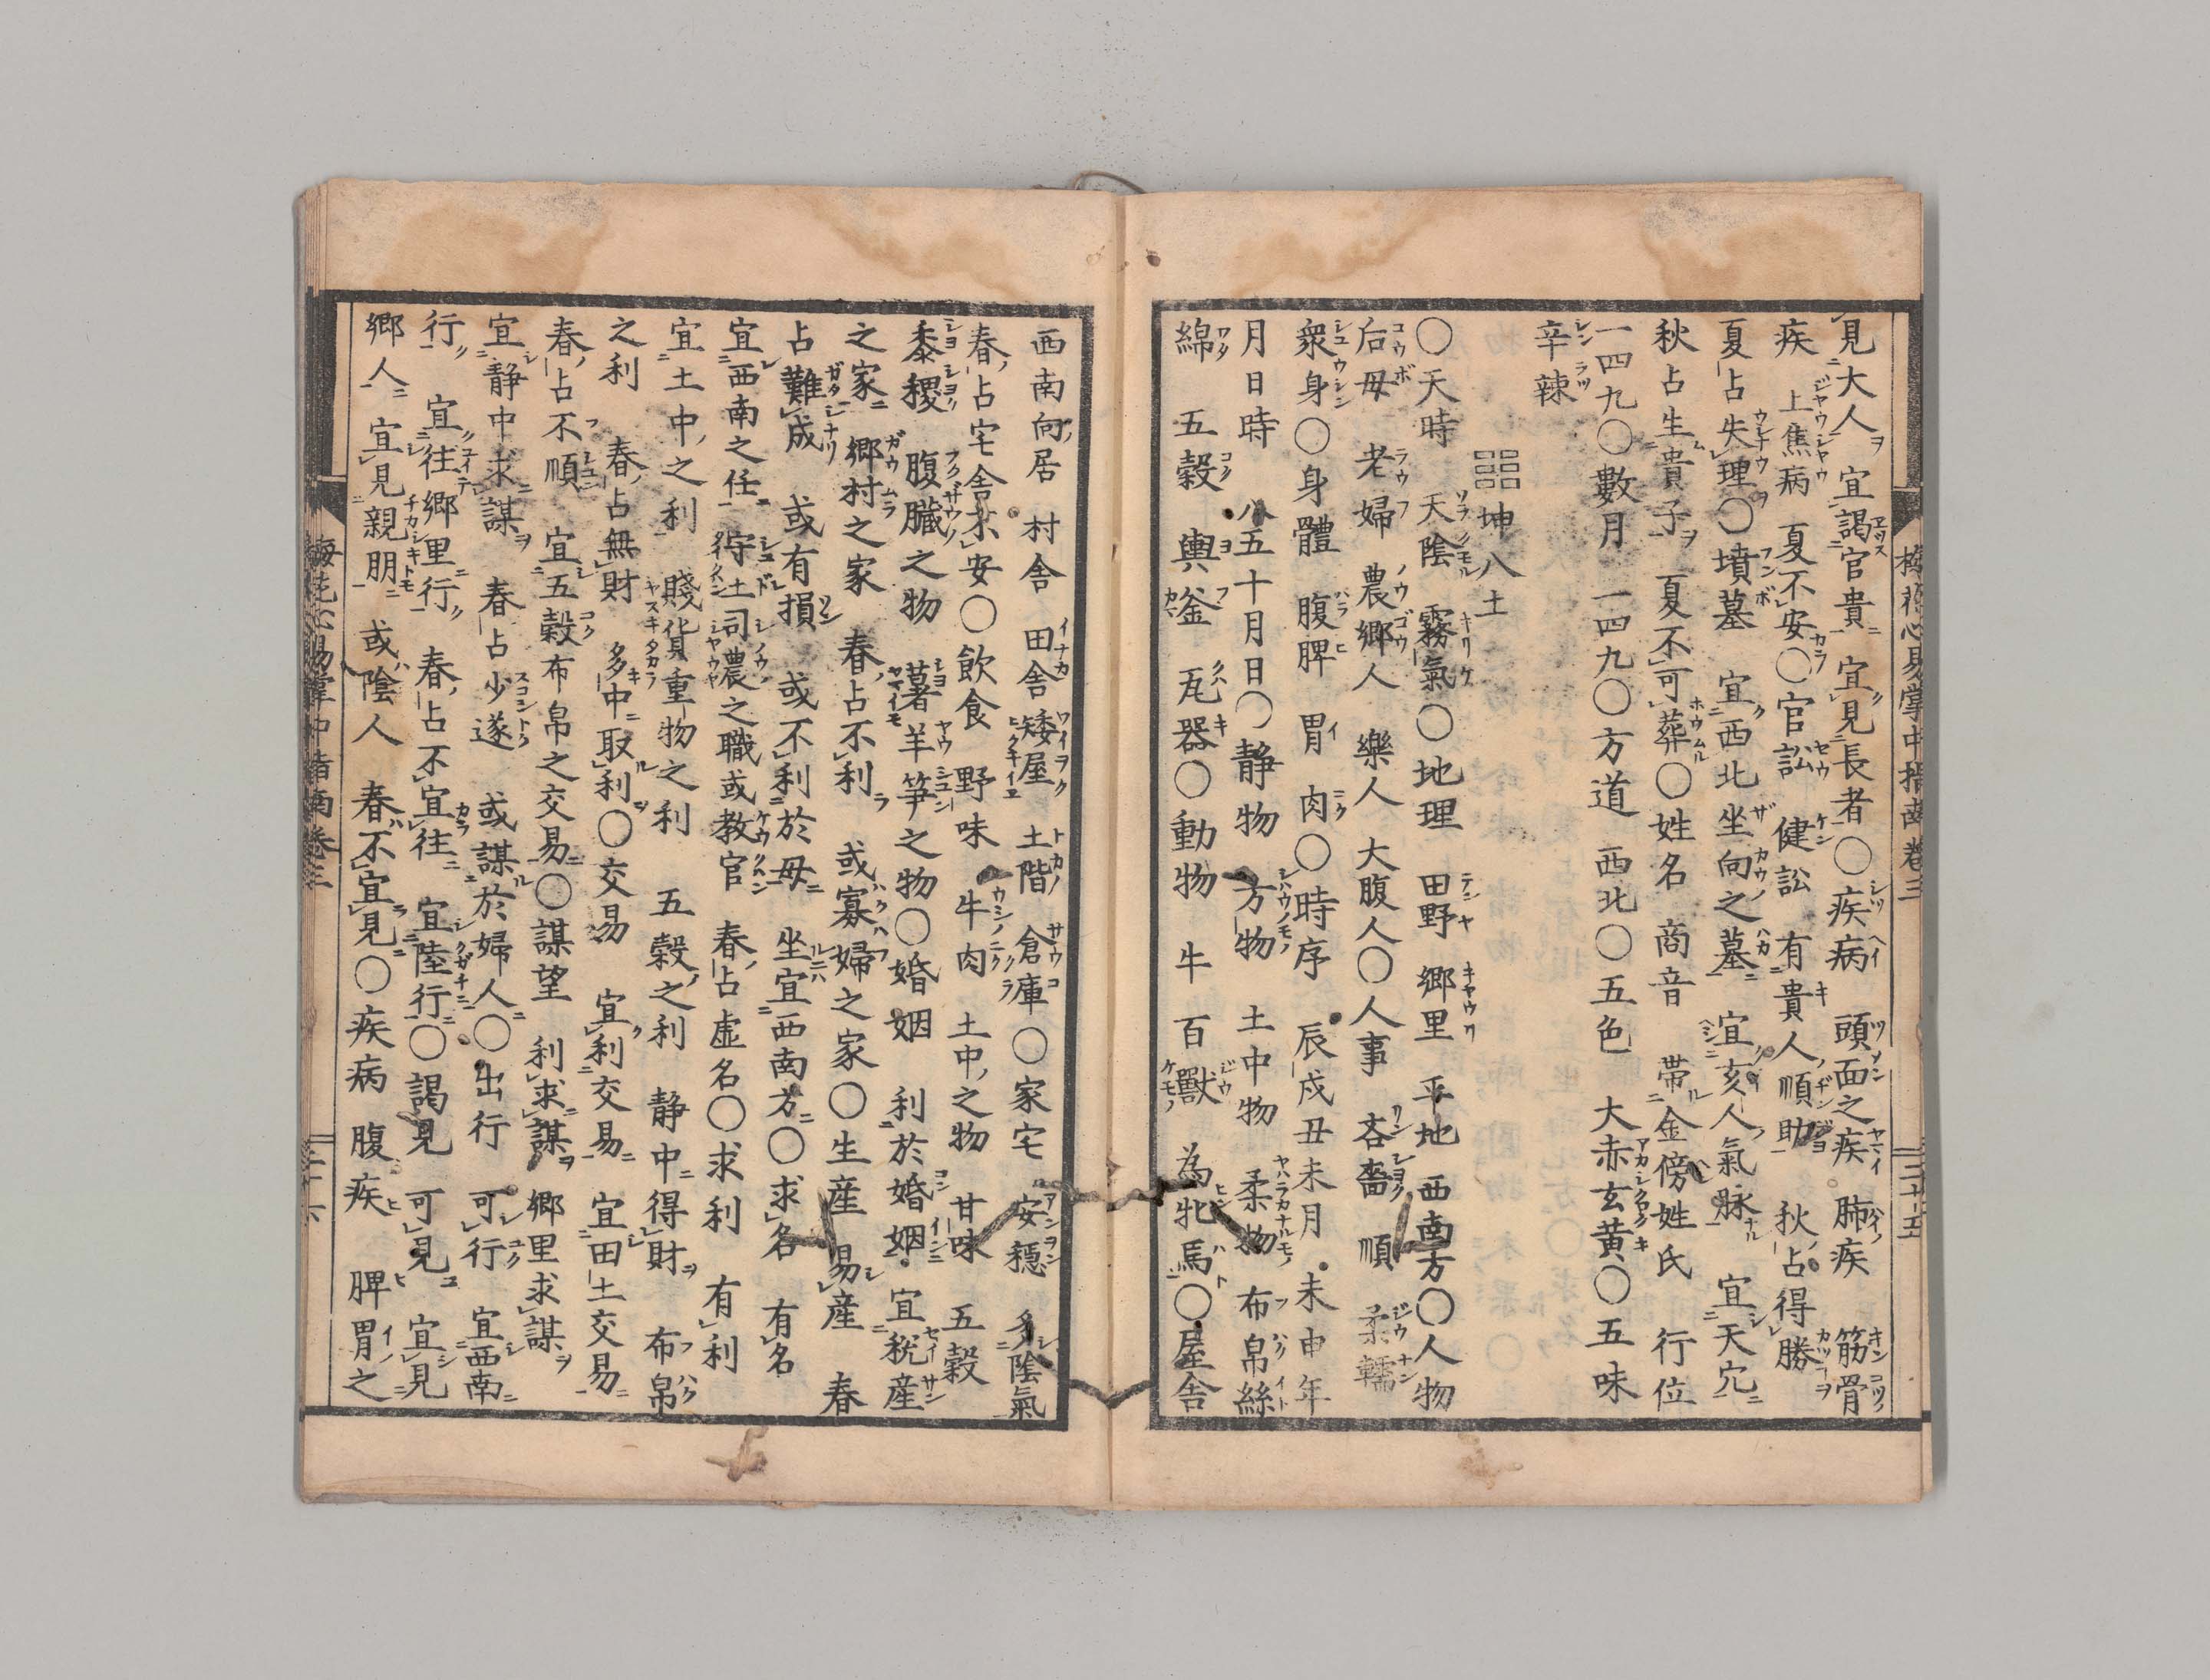 梅花心易掌中指南卷三
三十五
見大人 宜謁官貴 宜見長者〇疾病 頭面之疾 肺疾 筋骨
疾 上焦病 夏不安〇官訟 健訟 有貴人順助 秋占得勝
夏占失理〇墳墓 宜西北坐向之墓 宜亥人氣脉 宜天穴
秋占生貴子 夏不可葬〇姓名 商音 帶金傍姓氏 行位
一四九〇數月 一四九〇方道 西北〇五色 大赤玄黄〇五味
辛辣
☷坤八土
〇天時 天陰 霧氣〇地理 田野 郷里 平地 西南方〇人物
后母 老婦 農郷人 樂人 大腹人〇人事 吝嗇 順 柔轜
衆身〇身體 腹脾 胃 肉〇時序 辰戌丑未月 未申年
月日時 八五十月日〇静物 方物 土中物 柔物 布帛絲
綿 五穀 輿釜 瓦器〇動物 牛 百獸 為牝馬〇屋舎
西南向居 村舎 田舎 矮屋 土階 倉庫〇家宅 安穏 多陰氣
春占宅舎不安〇飲食 野味 牛肉 土中之物 甘味 五穀
黍稷 腹臓之物 薯羊笋之物〇婚姻 利於婚姻 宜税産
之家 郷村之家 春占不利 或寡婦之家〇生産 易産 春
占難成 或有損 或不利於母 坐宜西南方〇求名 有名
宜西南之任 守土司農之職或教官 春占虚名〇求利 有利
宜土中之利 賤貨重物之利 五穀之利 静中得財 布帛
之利 春占無財 多中取利〇交易 宜利交易 宜田土交易
春占不順 宜五穀布帛之交易〇謀望 利求謀 郷里求謀
宜静中求謀 春占少遂 或謀於婦人〇出行 可行 宜西南
行 宜往郷里行 春占不宜往 宜陸行〇謁見 可見 宜見
郷人 宜見親朋 或陰人 春不宜見〇疾病 腹疾 脾胃之
梅花心易掌中指南卷三
三十六